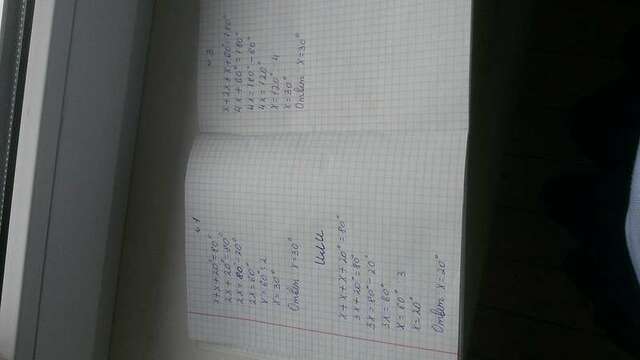 № 1
x+x+20°=80°
2x+20°=80°
2x=80°-20°
2x=60°
x=60°:2
x=30°
Ответ x=30°
или
x+x+x+20°=80°
3x+20°=80°
3x=80°-20°
3x=60°
x=60° 3
x=20°
Ответ x=20°
№ 3
x+2x+x+60°=180°
4x+60°=180°
4x=180°-60°
4x=120°
x=120° 4
x=30°
Ответ x=30°